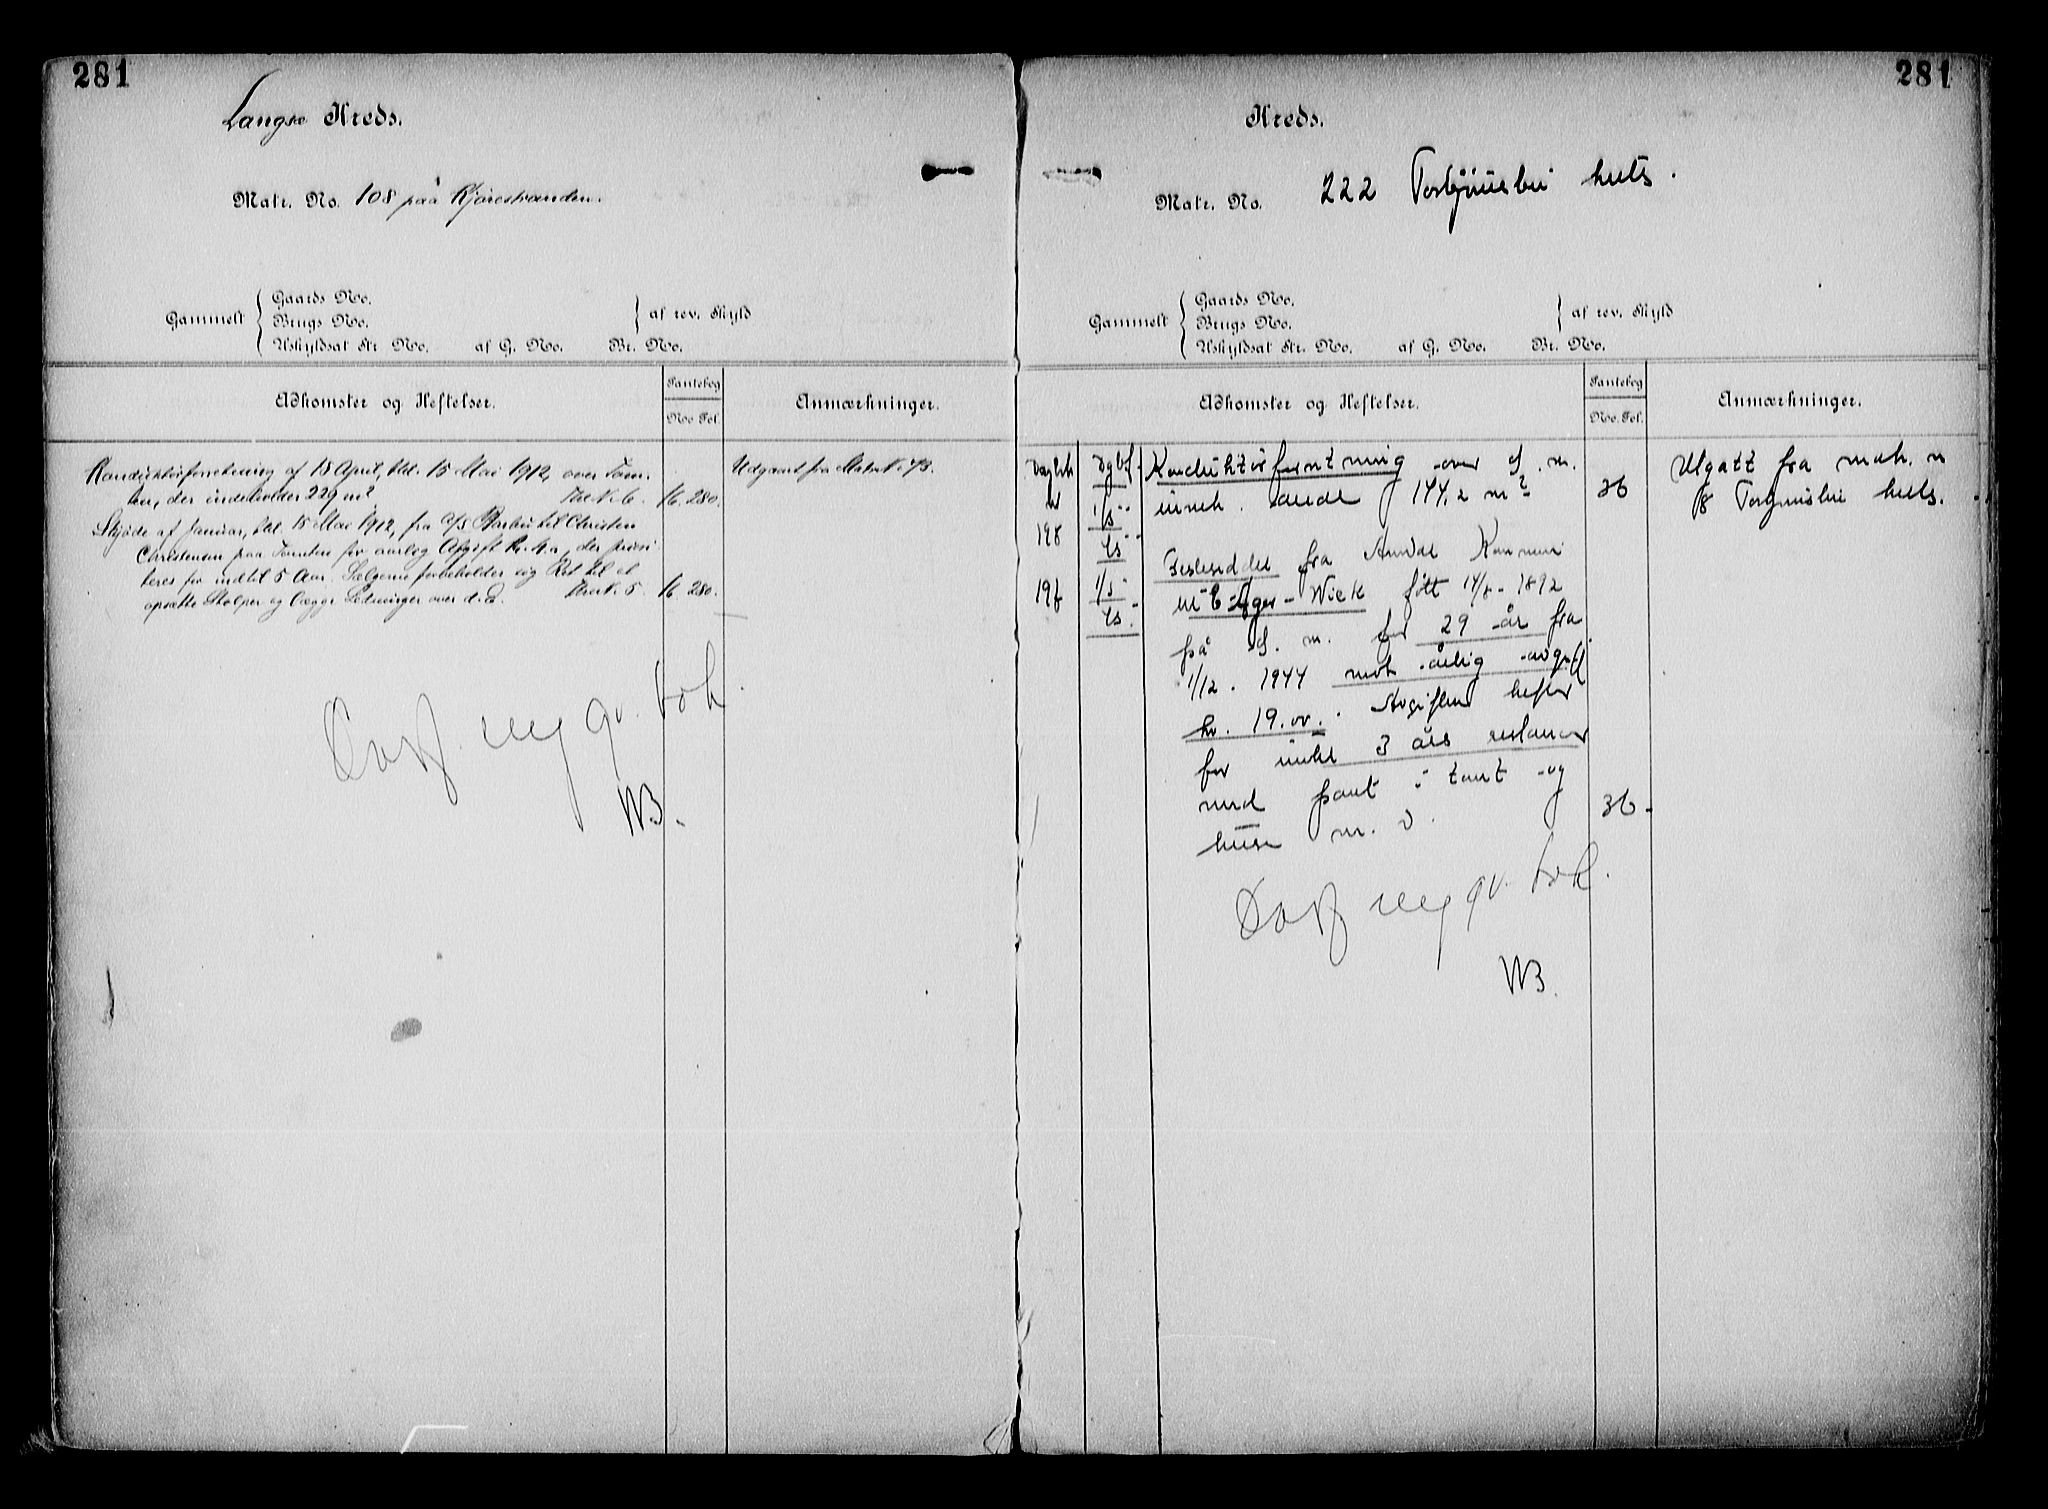 281
Langsæ Kreds.
Matr. No. 108 paa Kjørestranden.
Gammelt
Gaards No.
Brugs No.
Uskyldsat Str. No. af G. No. Br. No.
af rev. Skyld
Adkomster og Heftelser.
Pantebog
No. Fol.
Anmærkninger.
Konduktørforretning af 18 April, thl. 15 Mai 1912, over Tom-
ten, der indeholder 229 m² Thl. N. 6. 16. 280.
Udgaaet fra Matr. N. 78.
Skjøde af Januar, thl. 15 Mai 1912, fra A/S Barbu til Christen
Christensen paa Tomten for aarlig Afgift Kr. , der priori-
teres for indtil 5 Aar. Sælgerne forbeholder sig Ret til at
opsætte Stolper og lægge Ledninger over d. E. N. 5. 16. 280.
Overf. ny gr. bok
WB.
281
Kreds.
Matr. No. 222 Torbjørnsbu
Gammelt
Gaards No.
Brugs No.
Uskyldsat Str. No. af G. No. Br. No.
af rev. Skyld
Adkomster og Heftelser.
Pantebog
No. Fol.
Anmærkninger.
Dagbok nr Dgbf. Konduktørforretning over d. m.
198 1/5 45 inneh. ande 144,2 m² 36
Utgått fra matr. nr
8 Torbjørnsbu
196 1/5 45 Festeseddel fra Arendal Kommune
til Ager-Wick født 14/8-1892
på d. m. for 29 år fra
1/12. 1944 mot årlig avgift
kr. 19.00. Avgiften hefter
for inntil 3 års restanser
med pant i tomt og
huse m. v. 36
Overf. ny gr. bok.
WB.